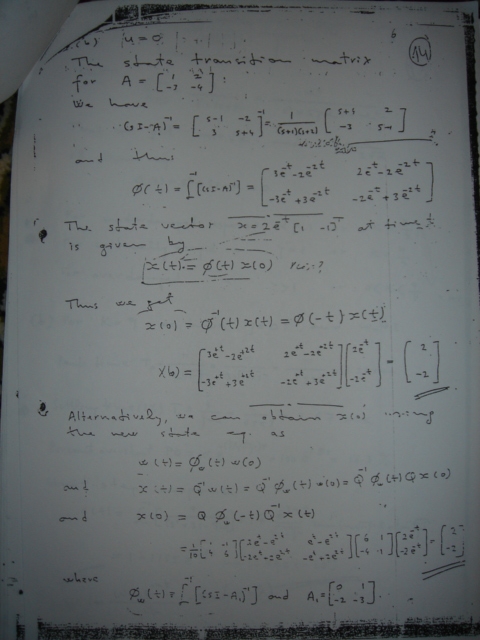 (b) u = 0
14
The state transition matrix
for A = [1 2; -3 -4] :
We have
(sI-A)⁻¹ = [s-1 -2; 3 s+4]⁻¹ = 1/((s+1)(s+2)) [s+4 2; -3 s-1]
and thus
Ø(t) = L⁻¹[(sI-A)⁻¹] = [3e⁻ᵗ-2e⁻²ᵗ 2e⁻ᵗ-2e⁻²ᵗ; -3e⁻ᵗ+3e⁻²ᵗ -2e⁻ᵗ+3e⁻²ᵗ]
The state vector x = 2e⁻ᵗ [1 -1]ᵀ at time t
is given by
x(t) = Ø(t) x(0)
Thus we get
x(0) = Ø⁻¹(t) x(t) = Ø(-t) x(t)
x(0) = [3eᵗ-2e²ᵗ 2eᵗ-2e²ᵗ; -3eᵗ+3e²ᵗ -2eᵗ+3e²ᵗ] [2e⁻ᵗ; -2e⁻ᵗ] = [2; -2]
Alternatively, we can obtain x(0) using
the new state eq. as
w(t) = Øw(t) w(0)
and x(t) = Q⁻¹ w(t) = Q⁻¹ Øw(t) w(0) = Q⁻¹ Øw(t) Q x(0)
and x(0) = Q Øw(-t) Q⁻¹ x(t)
= [2; -2]
where
Øw(t) = L⁻¹[(sI-A₁)⁻¹] and A₁ = [0 1; -2 -3].